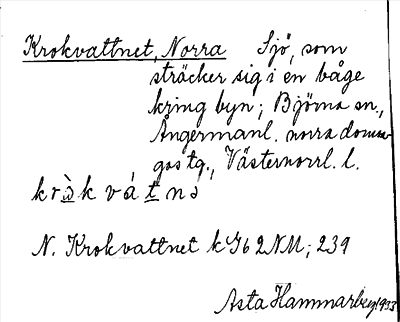 Krokvattnet, Norra Sjö, som
sträcker sig i en båge
kring byn; Björna sn.,
Ångermanl. norra doms-
gas tg., Västernorrl. l.
N. Krokvattnet k Gb 2 NM; 239
Asta Hammarberg 1933